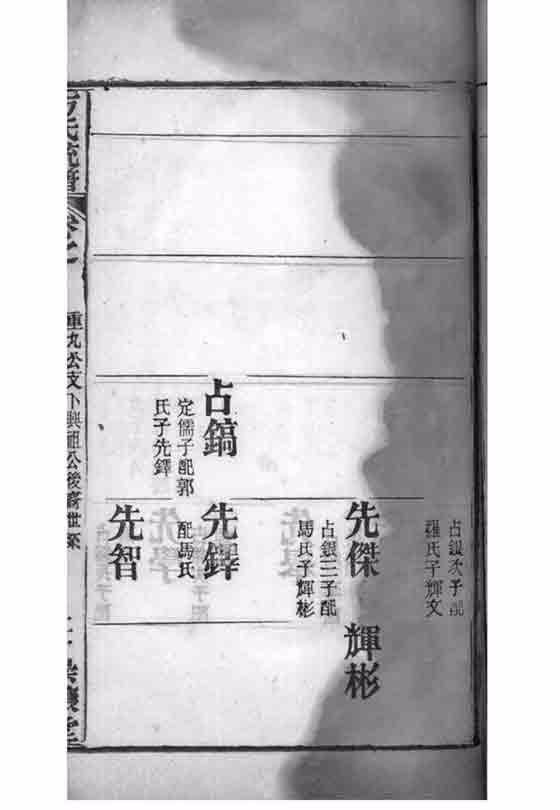 占銀次子配
羅氏子輝文
先傑
占銀三子配
馬氏子輝彬
輝彬
占鎬
定儒子配郭
氏子先鐸
先鐸
配馬氏
先智
方氏統譜
卷之
重九公支卜興祖公後裔世系